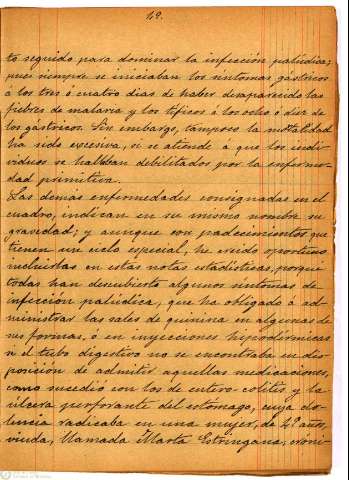 12.
to seguido para dominar la infección palúdica;
pues siempre se iniciaban los síntomas gástricos
á los tres ó cuatro dias de haber desaparecido las
fiebres de malaria y los típicos á los ocho ó diez de
los gástricos. Sin embargo, tampoco la mortalidad
ha sido excesiva, si se atiende a que los indi-
viduos se hallaban debilitados por la enferme-
dad primitiva.
Las demás enfermedades consignadas en el
cuadro, indican en su mismo nombre su
gravedad; y aunque son padecimientos que
tienen un ciclo especial, he creido oportuno
incluirlas en estas notas estadísticas, porque
todas han descubierto algunos síntomas de
infección palúdica, que ha obligado á ad-
ministrar las sales de quinina en algunas de
sus formas, ó en inyecciones hipodérmicas
si el tubo digestivo no se encontraba en dis-
posición de admitir aquellas medicaciones,
como sucedió con los de entero-colitis y la
úlcera perforante del estomago, cuya do-
lencia radicaba en una mujer, de 42 años,
viuda, llamada Marta Estringana, cróni-